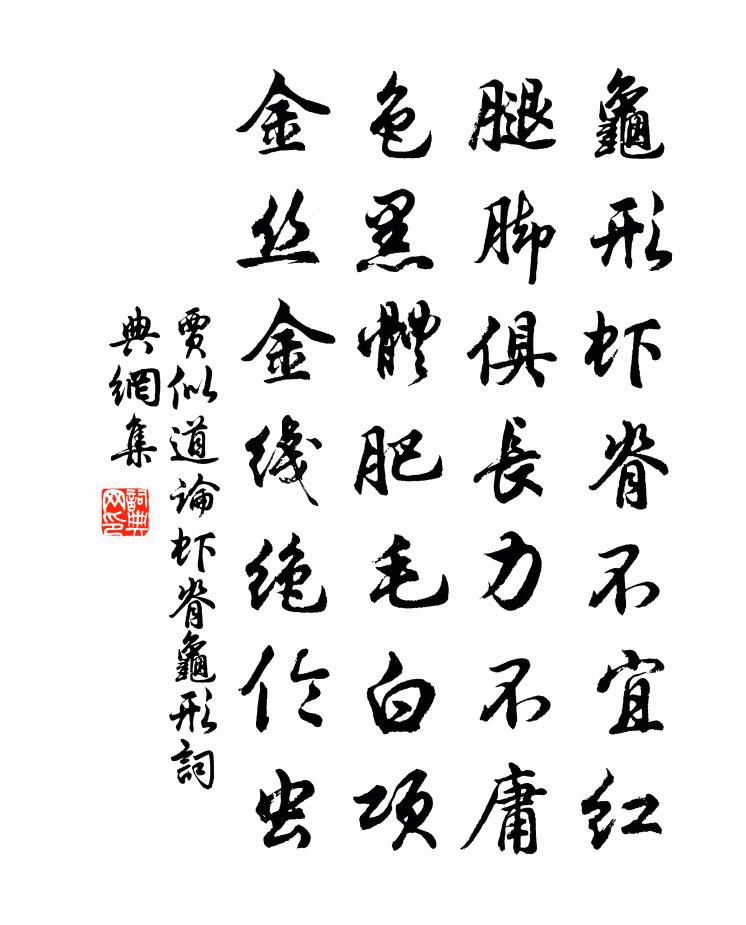 龜形虾脊不宜红
腿脚俱長力不庸
色黑體肥毛白项
金丝金线绝伶虫
賈似道論虾脊龜形詞
典網集
詞典网印